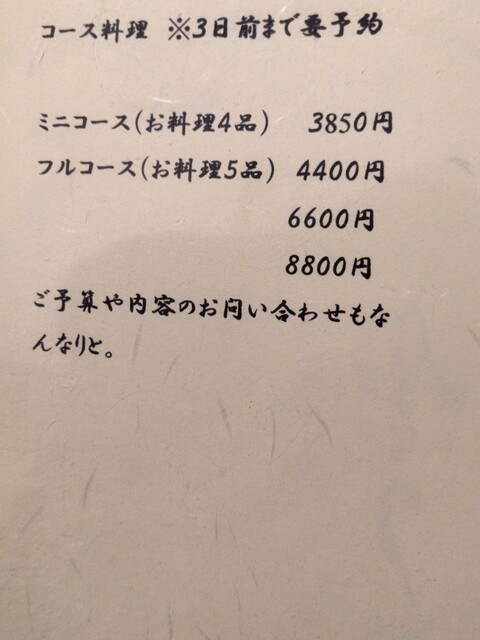 コース料理 ※3日前まで要予約
ミニコース(お料理4品) 3850円
フルコース(お料理5品) 4400円
6600円
8800円
ご予算や内容のお問い合わせもな
んなりと。